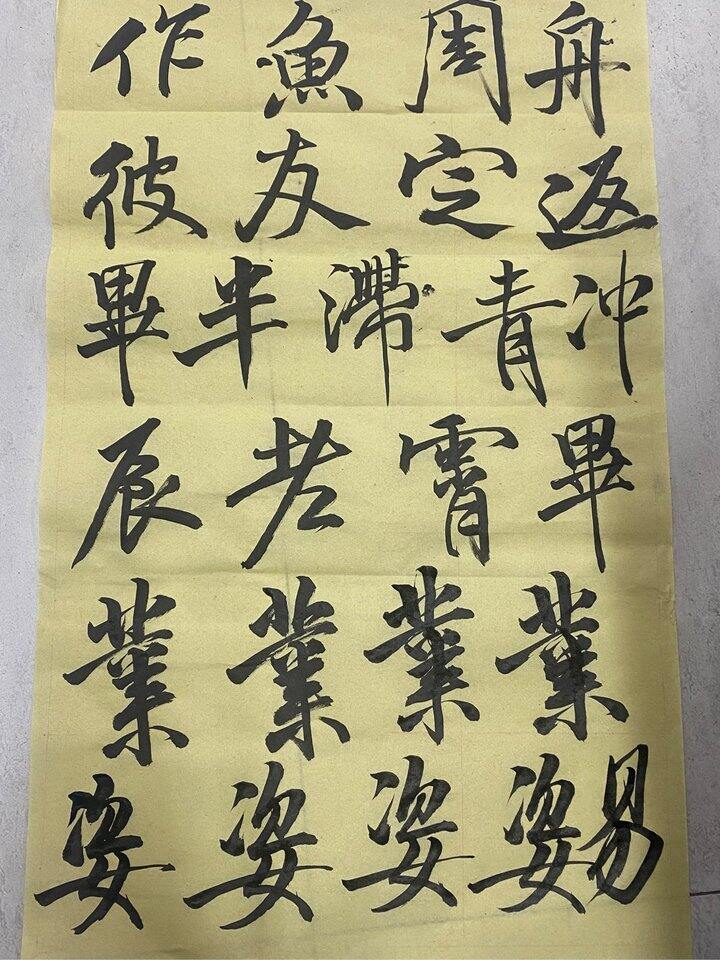 作魚周舟
彼友定返
畢半滯青冲
辰老霄畢
業業業業
姿姿姿姿易